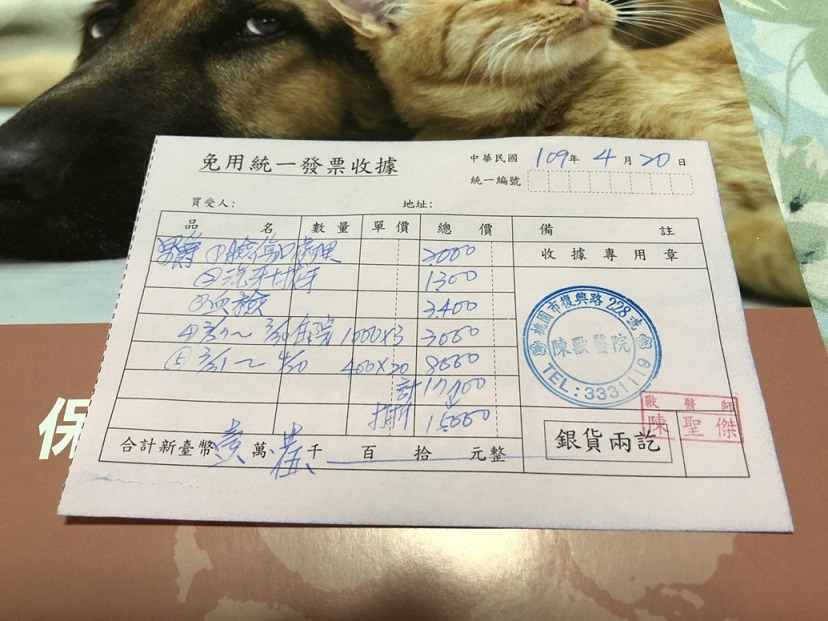 免用統一發票收據
中華民國 109年 4月 20日
統一編號
買受人: 地址:
品名 數量 單價 總價 備註
① 臉傷口處理 2000
收據專用章
② 洗牙+拔牙 1300
③ 血檢 3400
④ 住院 1000×3 3000
⑤ 400×20 8000
計 17700
15000
合計新臺幣 壹萬 伍千 百 拾 元整
銀貨兩訖
桃園市復興路228號
陳獸醫院
TEL:3331119
獸醫師
陳聖傑
保